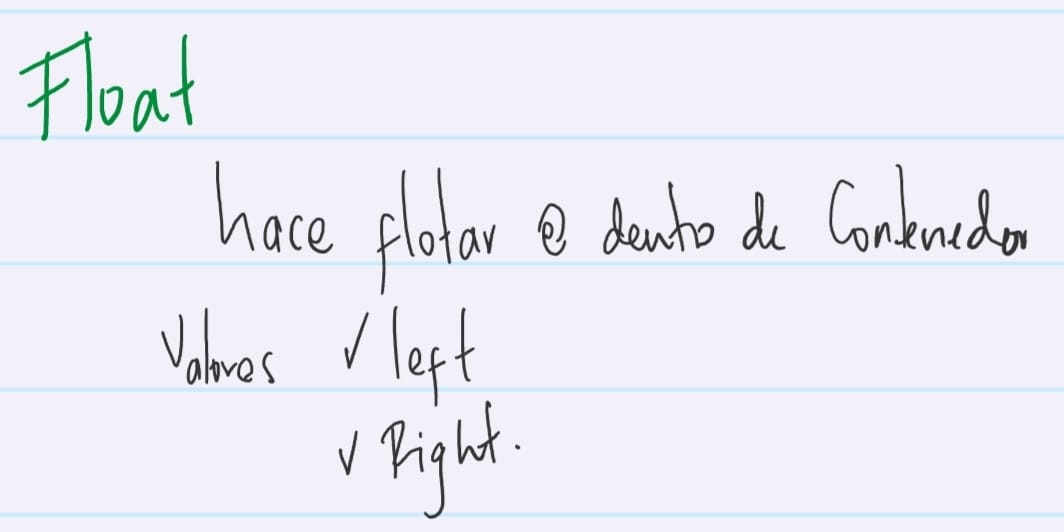 Float
hace flotar @ dentro de Contenedor
Valores ✓ left
✓ Right.